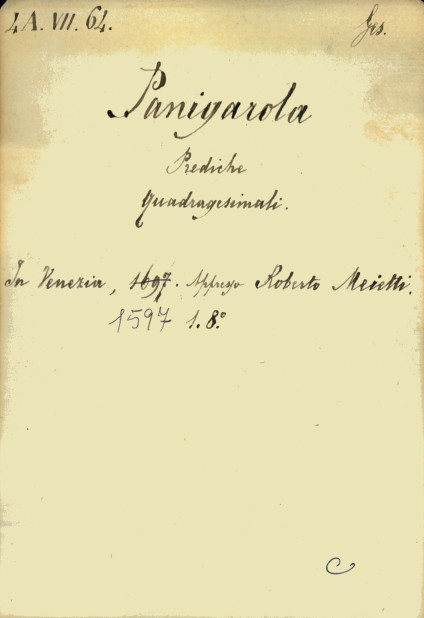 4A. VII. 64. Ges.
Panigarola
Prediche
Quadragesimali.
In Venezia, 1697. Appreso Roberto Meietti.
1597 1. 8.º
C